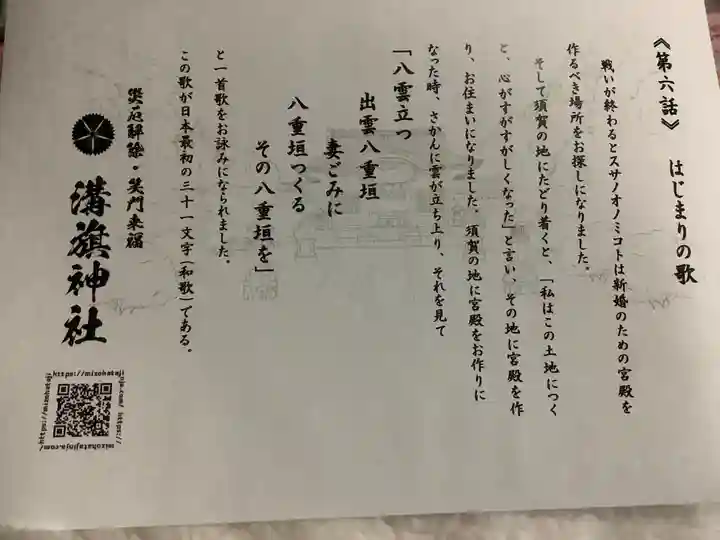 《第六話》 はじまりの歌
戦いが終わるとスサノオノミコトは新婚のための宮殿を
作るべき場所をお探しになりました。
そして須賀の地にたどり着くと、「私はこの土地につく
と、心がすがすがしくなった」と言い、その地に宮殿を作
り、お住まいになりました。須賀の地に宮殿をお作りに
なった時、さかんに雲が立ち上り、それを見て
「八雲立つ
出雲八重垣
妻ごみに
八重垣つくる
その八重垣を」
と一首歌をお詠みになられました。
この歌が日本最初の三十一文字(和歌)である。
災厄解除・笑門来福
溝旗神社
https://mizohatajinja.com/ https://mizohatajinja.com/